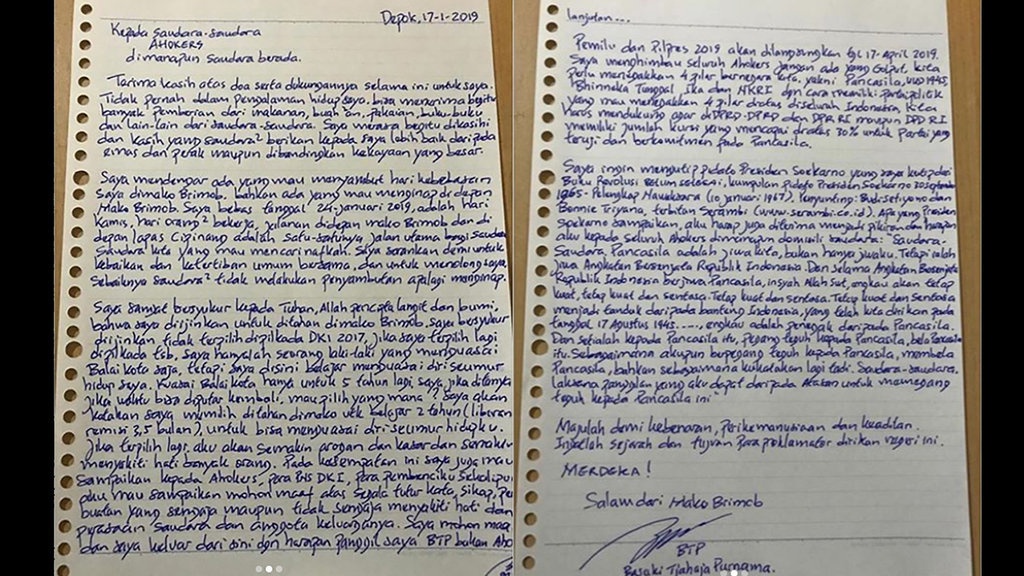 Depok, 17-1-2019
Kepada Saudara-saudara
AHOKERS
dimanapun saudara berada.
Tarima kasih atas doa serta dukungannya selama ini untuk saya.
Tidak pernah dalam pengalaman hidup saya, bisa menerima begitu
banyak pemberian dari makanan, buah an, pakaian, buku-buku
dan lain-lain dari saudara-saudara. Saya merasa begitu dikasihi
dan kasih yang saudara² berikan kepada saya lebih baik daripada
emas dan perak maupun dibandingkan kekayaan yang besar.
Saya mendengar ada yang mau menyambut hari kebebasan
Saya dimako Brimob, bahkan ada yang mau menginap di depan
Mako Brimob. Saya bebas tanggal 24 januari 2019, adalah hari
Kamis, hari orang² bekerja, jalanan didepan mako Brimob dan di
depan lapas Cipinang adalah satu-satunya jalan utama bagi saudara
Saudara kita yang mau mencari nafkah. Saya sarankan demi untuk
kebaikan dan ketertiban umum bersama, dan untuk menolong saya
Sebaiknya saudara² tidak melakukan penyambutan apalagi menginap.
Saya sangat bersyukur kepada Tuhan, Allah pencipta langit dan bumi,
bahwa saya diijinkan untuk ditahan dimako Brimob. Saya bersyukur
diijinkan tidak terpilih dipilkada DKI 2017, jika saya terpilih lagi
dipilkada tsb, saya hanyalah seorang laki-laki yang menguasai
Balai kota saja, tetapi saya disini belajar menguasai diri seumur
hidup saya. Kuasai Balai kota hanya untuk 5 tahun lagi saja. jika ditanya
jika waktu bisa diputar kembali, mau pilih yang mana? Saya akan
katakan saya memilih ditahan dimako utk belajar 2 tahun (liburan
remisi 3,5 bulan), untuk bisa menguasai diri seumur hidupku.
Jika terpilih lagi aku akan Semakin arogan dan kasar dan semakin
menyakiti hati banyak orang. Pada kesempatan ini saya juga mau
Sampaikan kepada, Ahokers, para PNS DKI, para pembenciku sekalipun
aku mau sampaikan mohon maaf atas segala tutur kata, sikap, per
buatan yang sengaja maupun tidak sengaja menyakiti hati dan
perasaan Saudara dan anggota keluarganya. Saya mohon maaf
dan saya keluar dari sini dgn harapan panggil saya BTP bukan Aho
lanjutan...
Pemilu dan Pilpres 2019 akan dilangsungkan tgl 17 April 2019.
Saya menghimbau seluruh Ahokers jangan ada yang Golput, kita
perlu menegakkan 4 pilar bernegara kita, yakni Pancasila, UUD 1945,
Bhinneka Tunggal Ika dan NKRI dgn cara memiliki partai politik
yang mau menegakkan 4 pilar diatas diseluruh Indonesia. Kita
harus mendukung agar di DPRD-DPRD dan DPR RI maupun DPD RI
memiliki jumlah kursi yang mencapai diatas 30% untuk Partai yang
teruji dan berkomitmen pada Pancasila.
Saya ingin mengutip pidato Presiden Soekarno yang saya kutip dari
Buku Revolusi Belum selesai, kumpulan pidato Presiden Soekarno 30 September
1965- Pelengkap Nawaksara (10 januari 1967). Penyunting: Budi Setiyono dan
Bonnie Triyana, terbitan Serambi (www.serambi.co.id). Apa yang Presiden
Soekarno sampaikan, aku harap juga diterima menjadi pikiran dan harapan
aku kepada seluruh Ahokers dimanapun domisili saudara: "Saudara-
Saudara, Pancasila adalah jiwa kita, bukan hanya jiwaku. Tetapi ialah
jiwa Angkatan Bersenjata Republik Indonesia. Dan selama Angkatan Bersenjata
Republik Indonesia berjiwa Pancasila, insyah Allah Swt, engkau akan tetap
kuat, tetap kuat dan sentosa. Tetap kuat dan sentosa. Tetap kuat dan Sentosa
menjadi tandak daripada banteng Indonesia, yang telah kita dirikan pada
tanggal 17 Agustus 1945....., engkau adalah penegak daripada Pancasila.
Dan setialah kepada Pancasila itu, pegang teguh kepada Pancasila, bela Pancasila
itu. Sebagaimana akupun berpegang teguh kepada Pancasila, membela
Pancasila, bahkan sebagaimana kukatakan lagi tadi. Saudara-saudara.
laksana panggilan yang aku dapat daripada Atasan untuk memegang
teguh kepada Pancasila ini"
Majulah demi kebenaran, Perikemanusiaan dan keadilan.
Ingatlah sejarah dan tujuan Para proklamator dirikan negeri ini.
MERDEKA!
Salam dari Mako Brimob
BTP
Basuki Tjahaja Purnama.